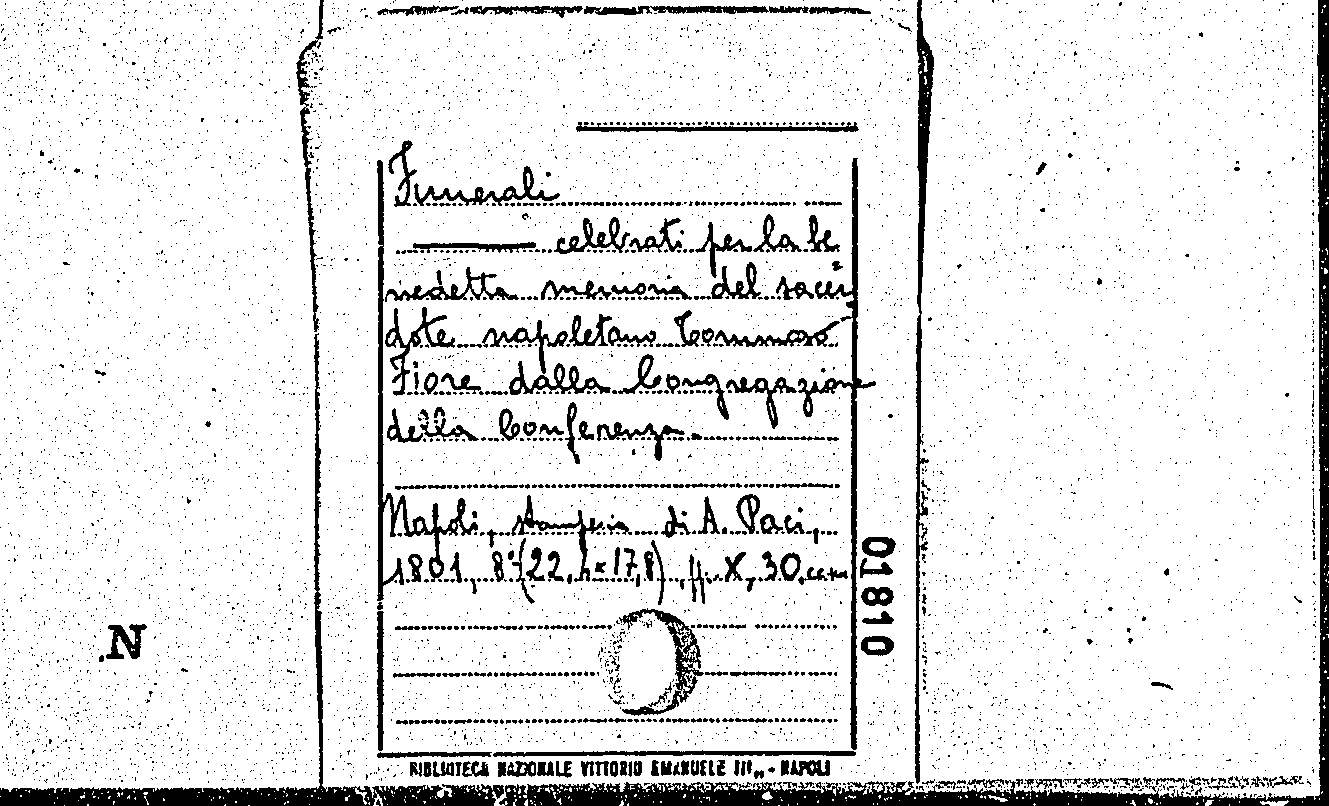 Funerali
——— celebrati per la be
nedetta memoria del sacer
dote napoletano Tommaso
Fiore dalla Congregazione
della Conferenza.
Napoli, stamperia di A. Paci,
1801, 8° (22, h × 17,8), pp. X, 30,
01810
N
BIBLIOTECA NAZIONALE VITTORIO EMANUELE III„ - NAPOLI